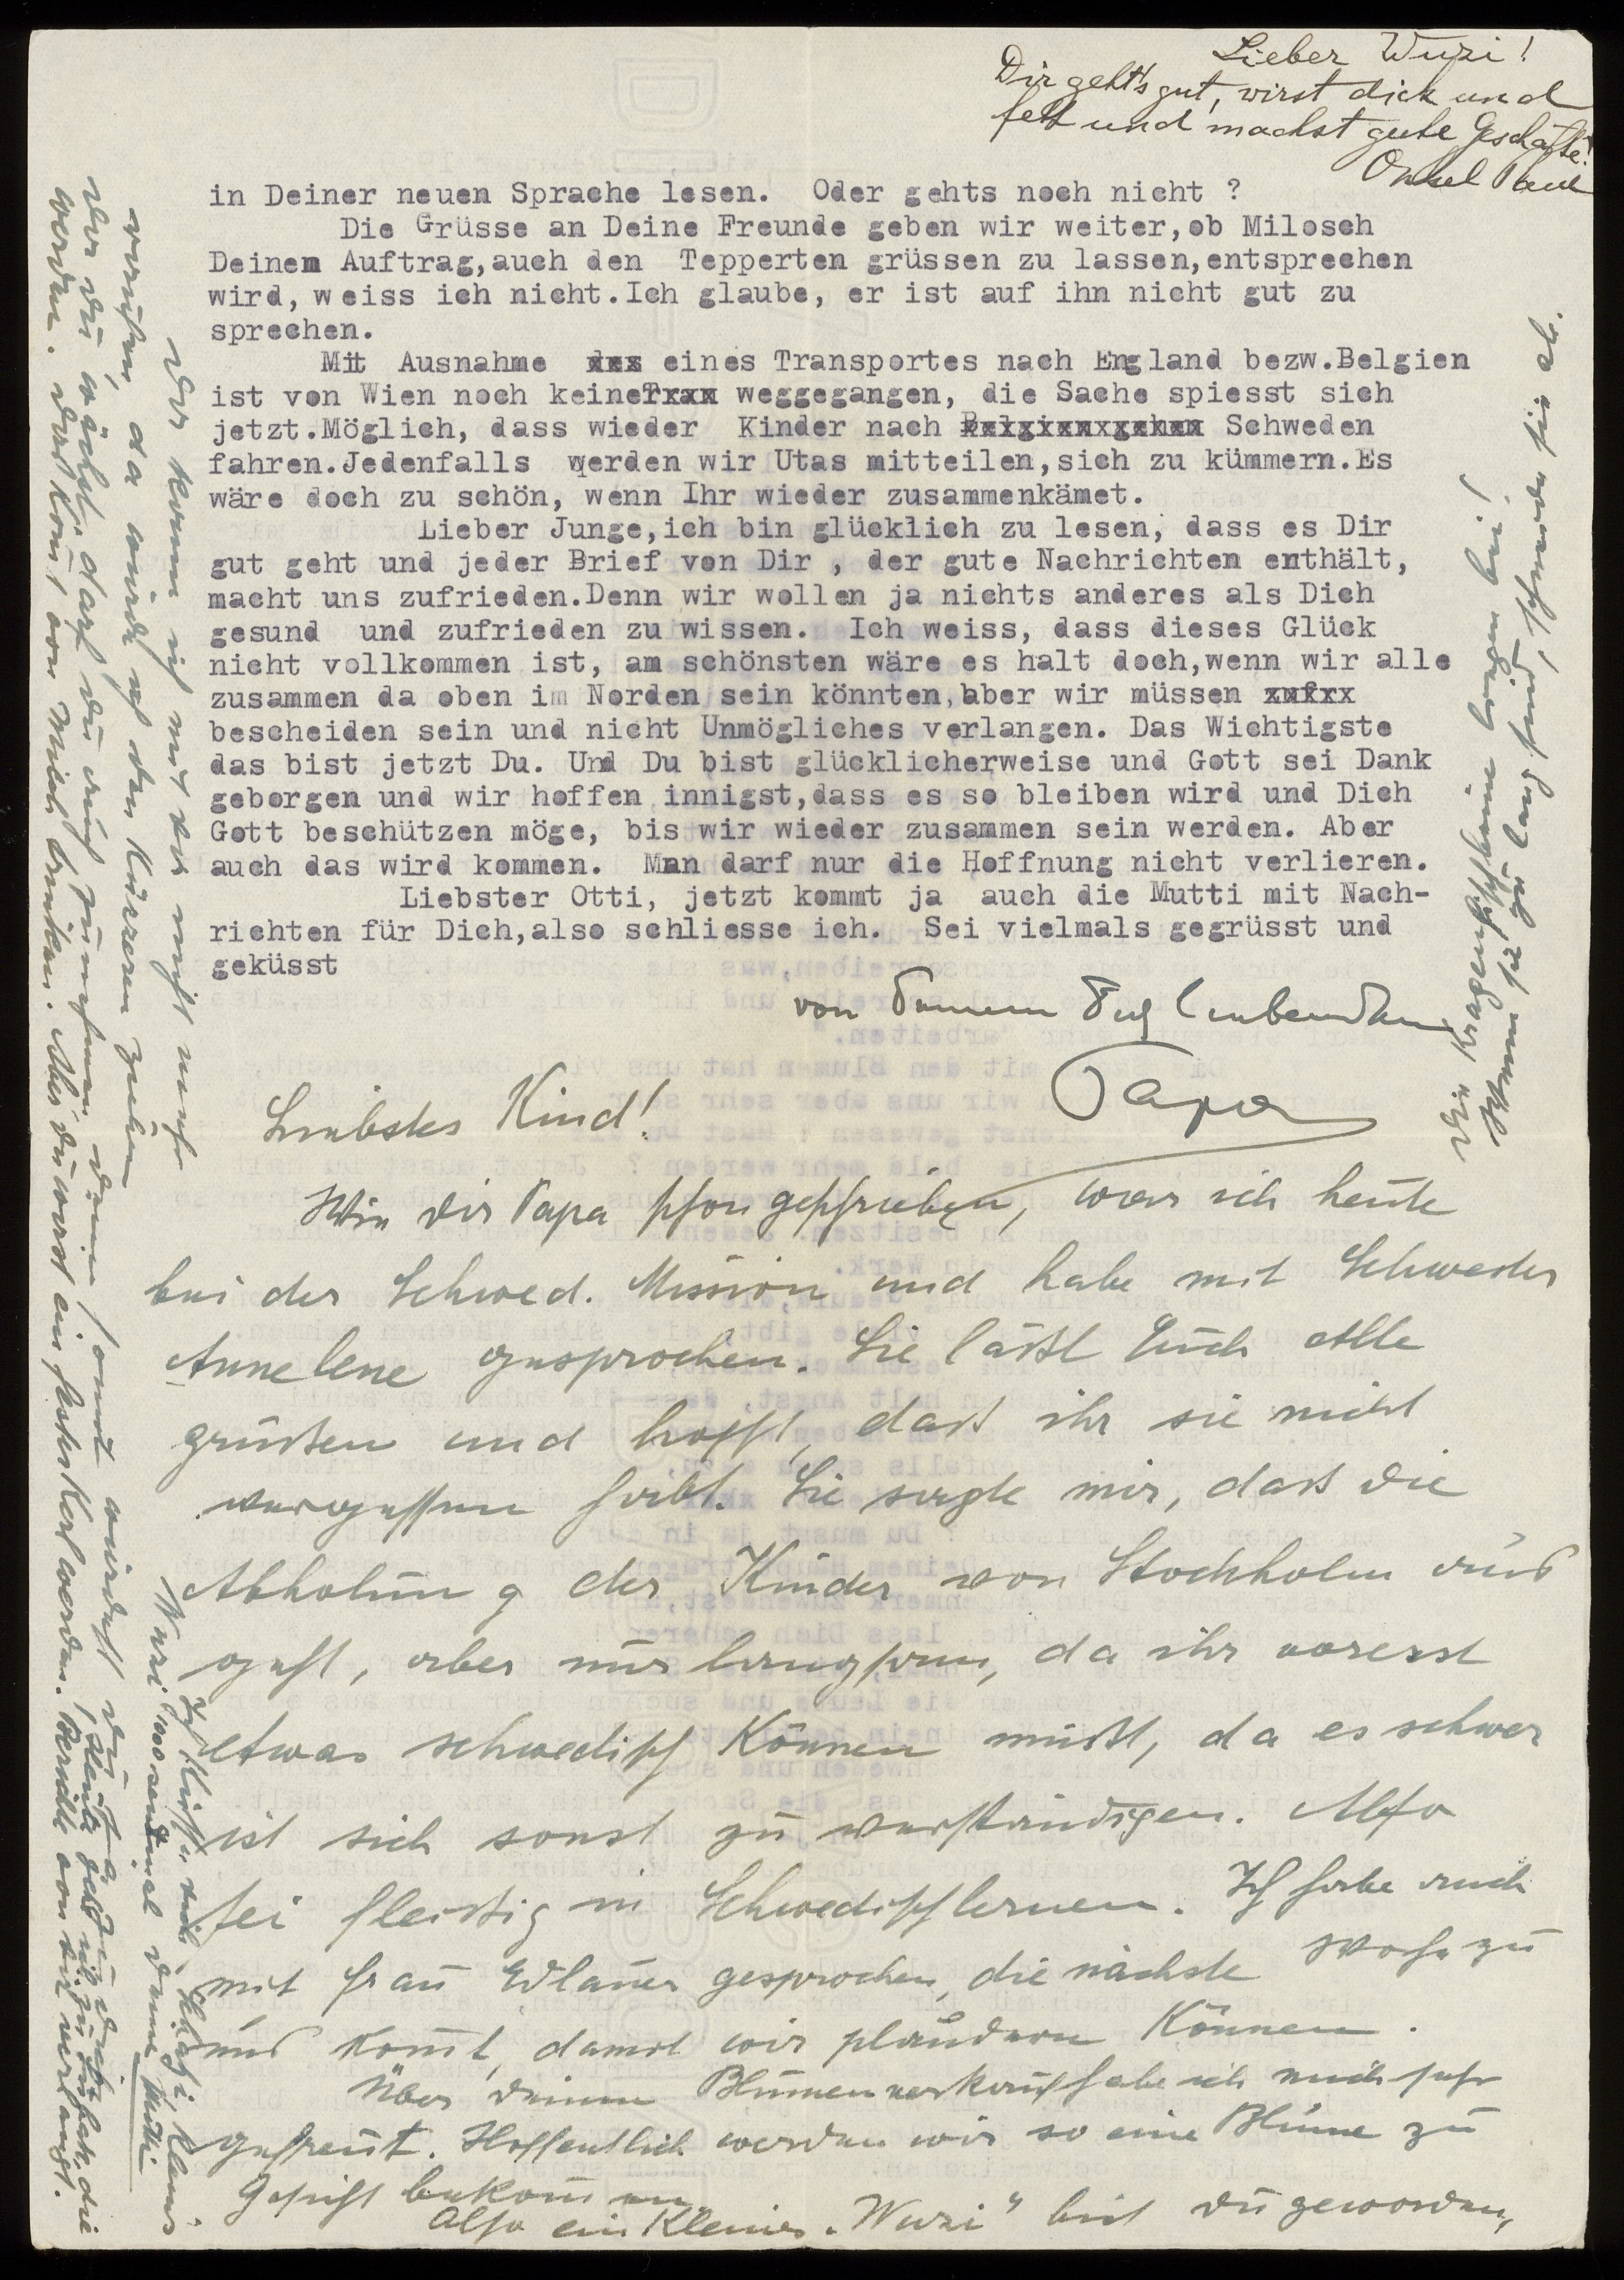 Lieber Wuzi!
Dir geht's gut, wirst dick und
fett und machst gute Geschäfte!
Onkel Paul
in Deiner neuen Sprache lesen.  Oder gehts noch nicht ?
Die Grüsse an Deine Freunde geben wir weiter,ob Milosch
Deinem Auftrag,auch den  Tepperten grüssen zu lassen,entsprechen
wird, weiss ich nicht.Ich glaube, er ist auf ihn nicht gut zu
sprechen.
Mit Ausnahme xxx eines Transportes nach England bezw.Belgien
ist von Wien noch keineTrxx weggegangen, die Sache spiesst sich
jetzt.Möglich, dass wieder  Kinder nach Schweden
fahren.Jedenfalls  werden wir Utas mitteilen,sich zu kümmern.Es
wäre doch zu schön, wenn Ihr wieder zusammenkämet.
Lieber Junge,ich bin glücklich zu lesen, dass es Dir
gut geht und jeder Brief von Dir , der gute Nachrichten enthält,
macht uns zufrieden.Denn wir wollen ja nichts anderes als Dich
gesund  und zufrieden zu wissen.  Ich weiss, dass dieses Glück
nicht vollkommen ist, am schönsten wäre es halt doch,wenn wir alle
zusammen da oben im Norden sein könnten,aber wir müssen xufrx
bescheiden sein und nicht Unmögliches verlangen. Das Wichtigste
das bist jetzt Du. Und Du bist glücklicherweise und Gott sei Dank
geborgen und wir hoffen innigst,dass es so bleiben wird und Dich
Gott beschützen möge, bis wir wieder zusammen sein werden. Aber
auch das wird kommen.  Man darf nur die Hoffnung nicht verlieren.
Liebster Otti, jetzt kommt ja  auch die Mutti mit Nach-
richten für Dich,also schliesse ich.  Sei vielmals gegrüsst und
geküsst
von Deinem Dich liebenden
Papa
Liebstes Kind!
Wie dir Papa schon geschrieben, war ich heute
bei der Schwed. Mission und habe mit Schwester
Annelene gesprochen. Sie läßt Euch Alle
grüßen und hofft, daß ihr sie nicht
vergessen habt. Sie sagte mir, daß die
Abholung der Kinder von Stockholm aus
geht, aber nur langsam, da ihr vorerst
etwas schwedisch können müßt, da es schwer
ist sich sonst zu verständigen. Also
sei fleißig im Schwedischlernen. Ich habe auch
mit Frau gesprochen, die nächste Woche zu
uns komt, damit wir plaudern können.
Über deinen Blumenverkauf habe ich mich sehr
gefreut. Hoffentlich werden wir so eine Blume zu
Gesicht bekommen.
Also ein kleiner „Wuzi" bist du geworden,
der kann ich mit dir nicht mehr
raufen, da würde ich den Kürzeren ziehen
Nur du wächst, darf du auch zunehmen denn sonst würdest du ja zu dick
werden. Das komt vom Milch trinken. Aber du wirst ein fescher Kerl werden.
Ich küsse dich, Schatzi, kleines
Wuzi 1000 sendmal deine Mutti
Die Kragenstäbchen liegen bei!
Wenn sie zu lang sind, schneide sie ab.